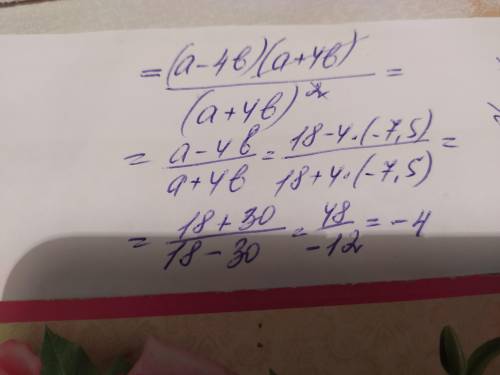 = (a-4b)(a+4b) / (a+4b)² =
= a-4b / a+4b = 18-4·(-7,5) / 18+4·(-7,5) =
= 18+30 / 18-30 = 48 / -12 = -4